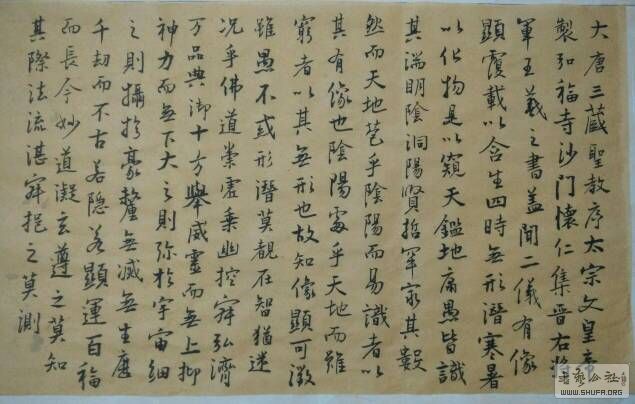 大唐三藏聖教序太宗文皇帝
製弘福寺沙門懷仁集晉右將
軍王羲之書蓋聞二儀有像
顯覆載以含生四時無形潛寒暑
以化物是以窺天鑑地庸愚皆識
其端明陰洞陽賢哲罕窮其數
然而天地苞乎陰陽而易識者以
其有像也陰陽處乎天地而難
窮者以其無形也故知像顯可徵
雖愚不惑形潛莫覩在智猶迷
況乎佛道崇虛乘幽控寂弘濟
万品典御十方舉威靈而無上抑
神力而無下大之則弥於宇宙細
之則攝於豪釐無滅無生歷
千劫而不古若隱若顯運百福
而長今妙道凝玄遵之莫知
其際法流湛寂挹之莫測
WWW.SHUFA.ORG